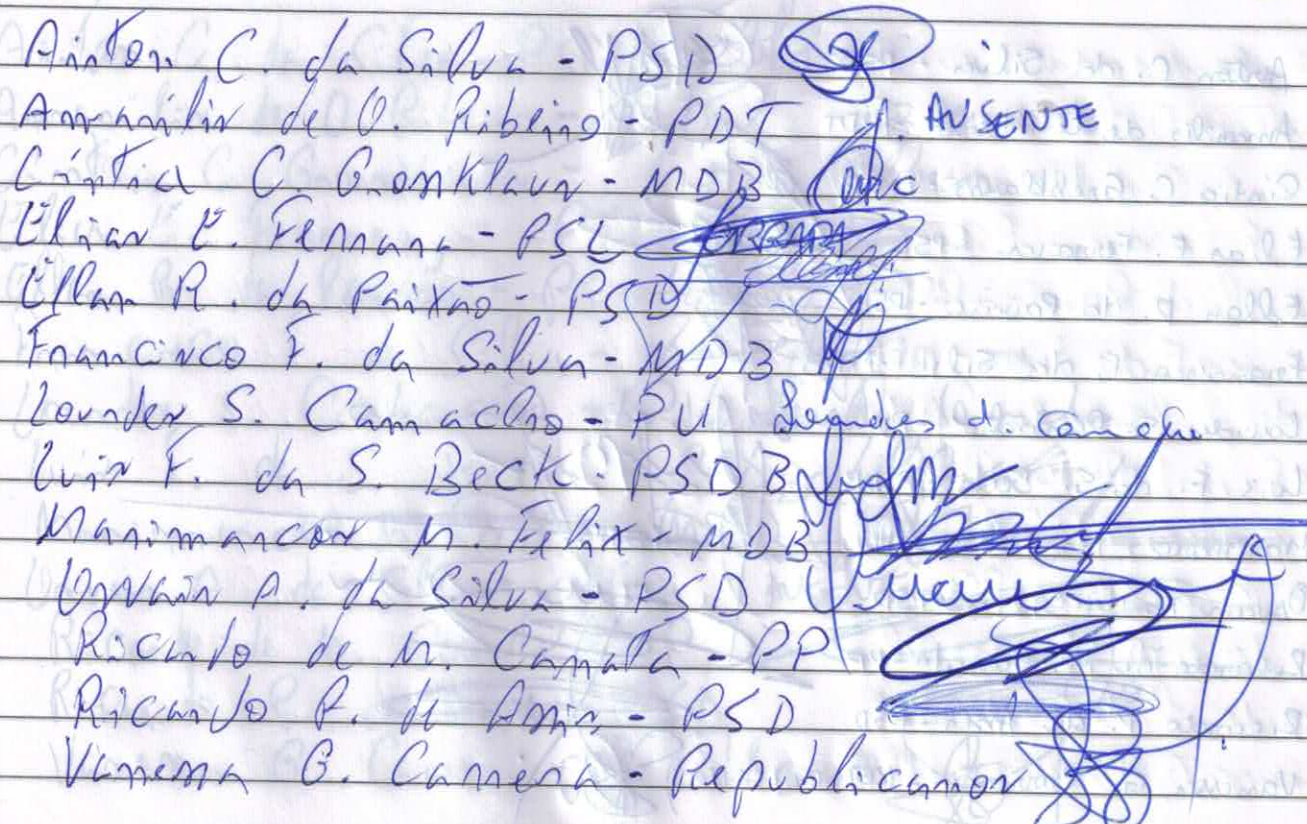 Airton C. da Silva - PSD
Amarildo de O. Ribeiro - PDT AUSENTE
Cíntia C. Gonsklaus - MDB
Elias E. Ferrara - PSL FERRARA
Ellan R. da Paixão - PSD
Francisco F. da Silva - MDB
Lourdes S. Camacho - PV Lourdes S. Camacho
Luis F. da S. Beck - PSDB
Marimarcos M. Felix - MDB
Osvair A. da Silva - PSD
Ricardo de M. Canata - PP
Ricardo P. de Assis - PSD
Vanessa G. Carrera - Republicanos